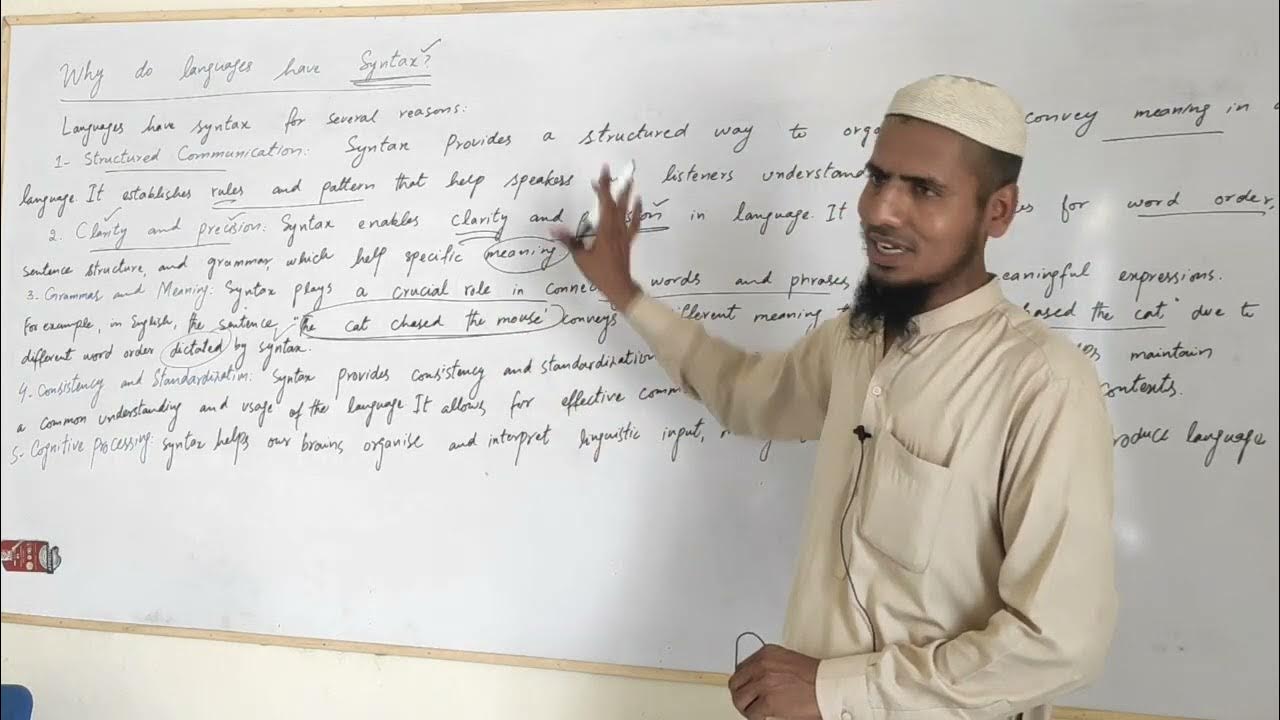 Why do languages have Syntax?
Languages have syntax for several reasons:
1- Structured Communication: Syntax Provides a structured way to convey meaning in a
language. It establishes rules and pattern that help speakers listeners understand
2. Clarity and precision: Syntax enables clarity and precision in language. It for word order,
sentence structure, and grammar, which help specific meaning
3. Grammar and Meaning: Syntax plays a crucial role in words and phrases meaningful expressions.
For example, in English, the sentence, "the cat chased the mouse" conveys different meaning chased the cat" due to
different word order dictated by syntax.
4. Consistency and Standardization: Syntax provides consistency and standardization maintain
a common understanding and usage of the language It allows for effective contents.
5- Cognitive Processing: syntax helps our brains organise and interpret linguistic input, language